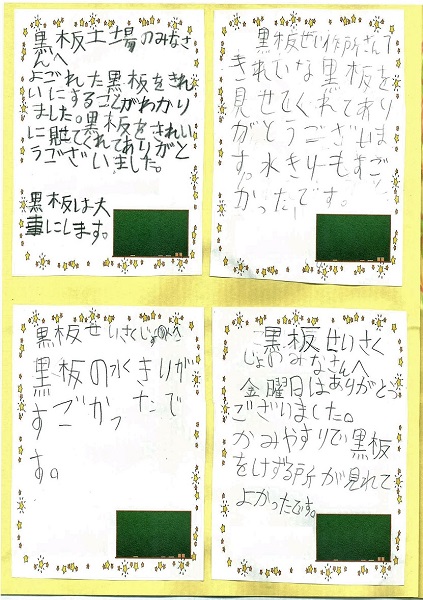 黒板工場のみなさ
んへ
よごれた黒板をきれ
いにすることがわかり
ました。黒板をきれい
に見せてくれてありがと
うございました。
黒板は大
事にします。
黒板せい作所さんへ
きれいな黒板を
見せてくれてあり
がとうございま
す。水きりもすご
かったです。
黒板せいさくじょのみんなへ
黒板の水きりが
すごかったで
す。
黒板せいさく
じょのみなさんへ
金曜日はありがとう
ございました。
かみやすりで黒板
をけずる所が見れて
よかったです。